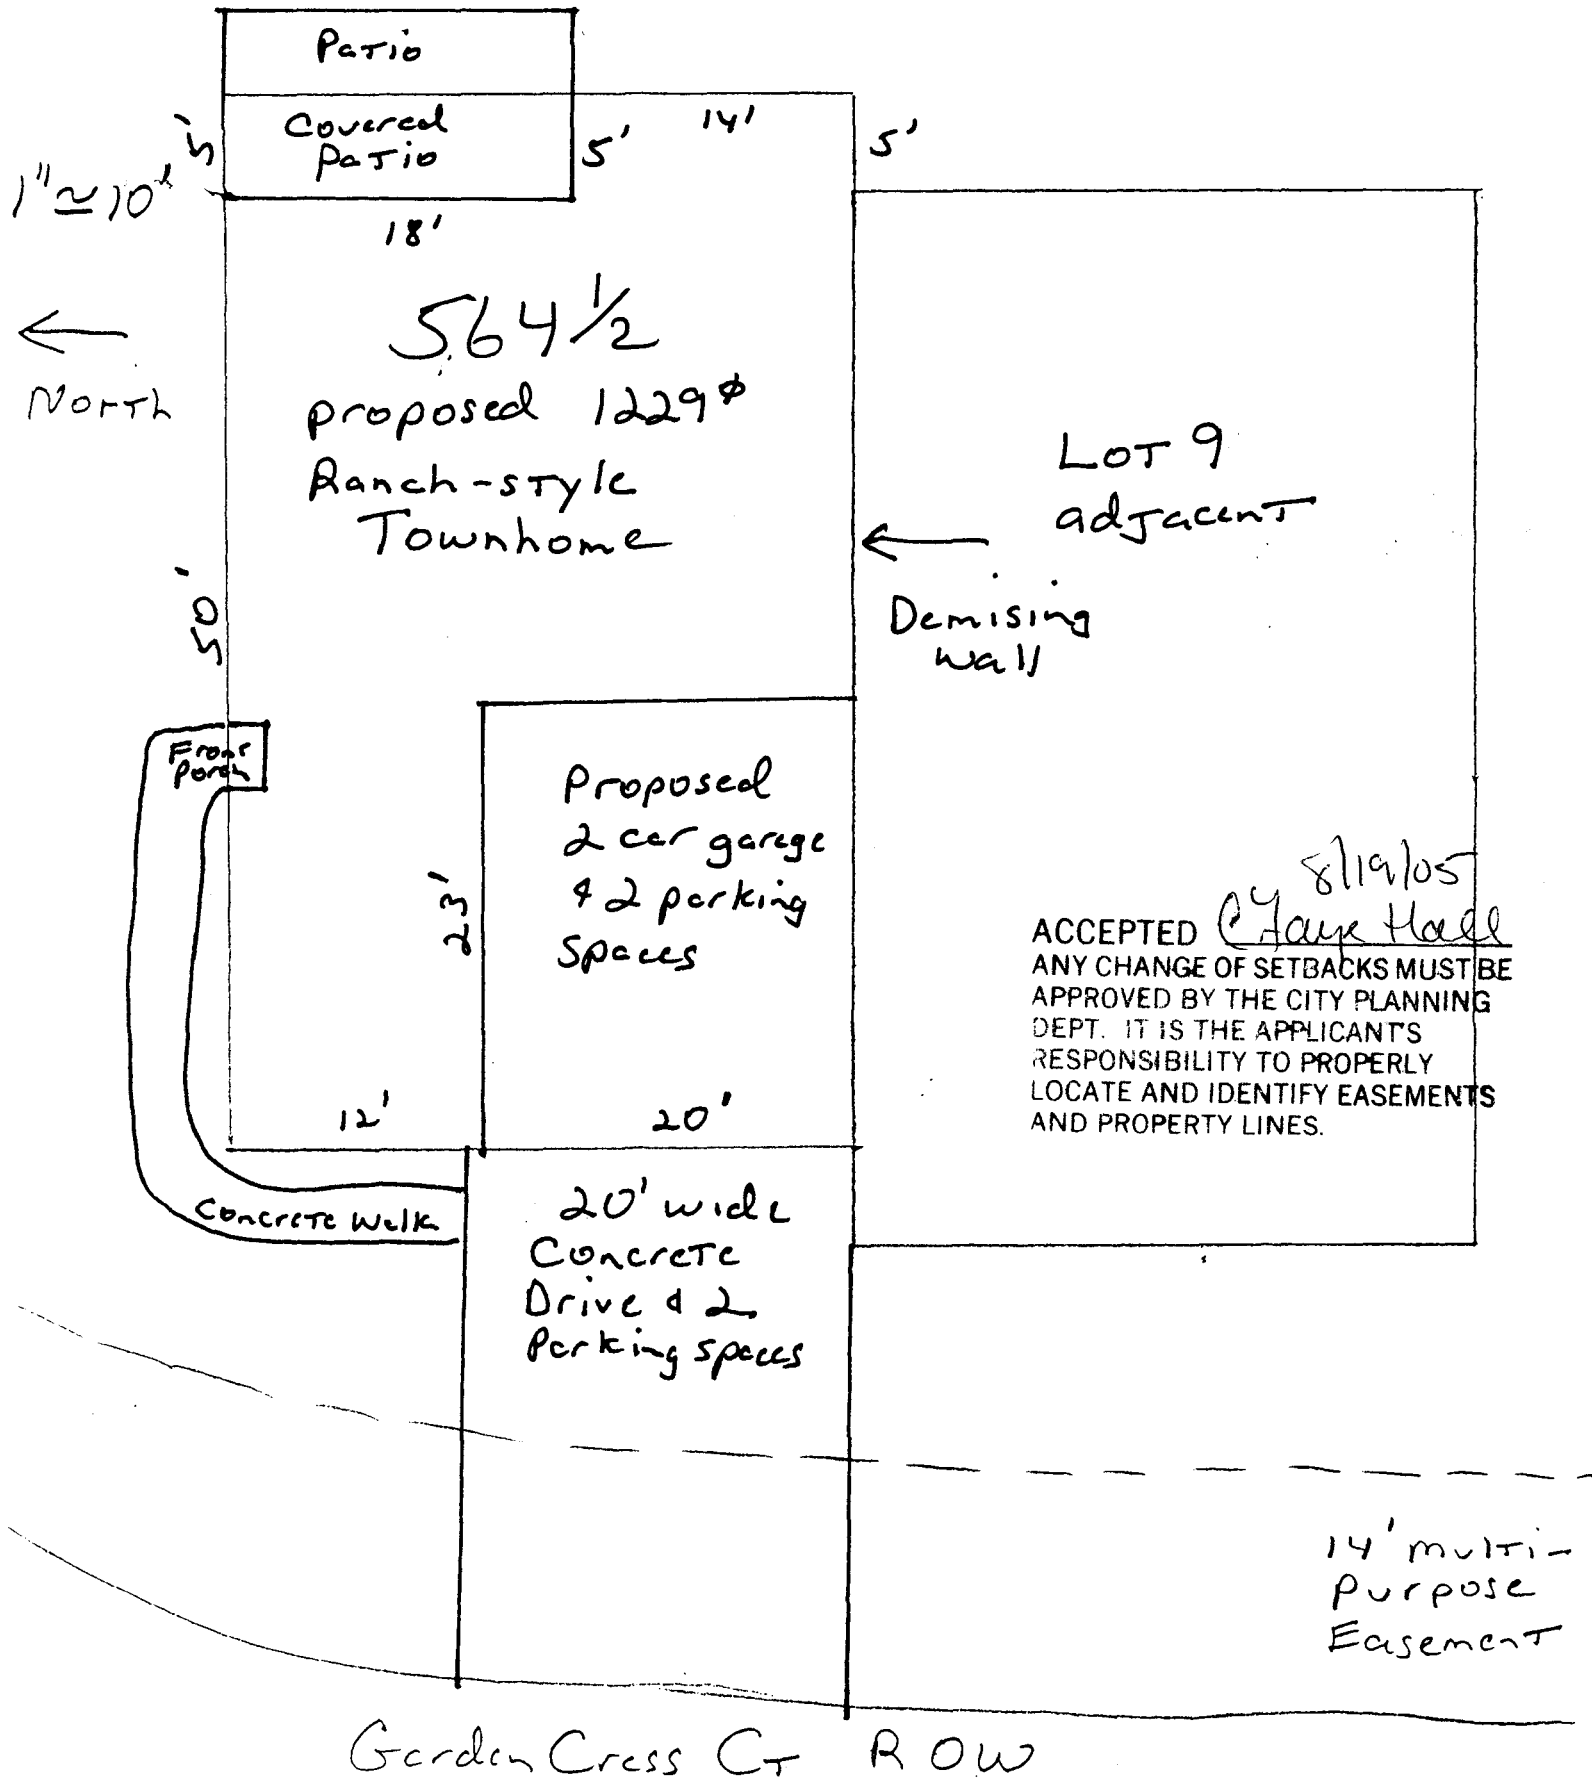 Patio
Covered
Patio
5'
5'
14'
5'
1" ≃ 10'
18'
564 1/2
North
proposed 1229⌀
Ranch-style
Townhome
Lot 9
adjacent
Demising
wall
50'
Front
Porch
Proposed
2 car garage
& 2 parking
spaces
23'
8/19/05
ACCEPTED C Faye Hall
ANY CHANGE OF SETBACKS MUST BE
APPROVED BY THE CITY PLANNING
DEPT. IT IS THE APPLICANT'S
RESPONSIBILITY TO PROPERLY
LOCATE AND IDENTIFY EASEMENTS
AND PROPERTY LINES.
12'
20'
Concrete Walk
20' wide
Concrete
Drive & 2
Parking spaces
14' multi-
Purpose
Easement
Garden Cress Ct ROW